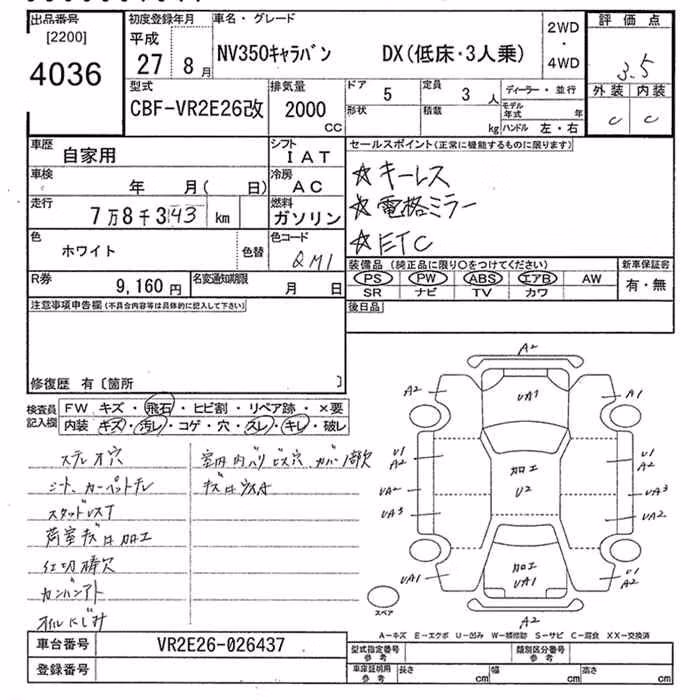 出品番号
[2200]
4036
初度登録年月
平成
27 8月
車名・グレード
NV350キャラバン DX(低床・3人乗)
2WD
・
4WD
評価点
3.5
外装 内装
C C
型式
CBF-VR2E26改
排気量
2000
CC
ドア 5
定員 3 人
形状
積載 kg
ディーラー・並行
モデル年式 年
ハンドル 左・右
車歴
自家用
シフト
IAT
車検
年 月( 日)
冷房
AC
走行
7万8千343 km
燃料
ガソリン
色
ホワイト
色替
色コード
QM1
R券
9,160円
名変通知期限
月 日
セールスポイント(正常に機能するものに限ります)
☆キーレス
☆電格ミラー
☆ETC
装備品(純正品に限り○をつけてください)
PS PW ABS エアB AW
SR ナビ TV カワ
新車保証書
有・無
後日品
注意事項申告欄(不具合内容等は具体的に記入して下さい)
修復歴 有〔箇所 〕
検査員
記入欄
FW キズ・飛石・ヒビ割・リペア跡・×要
内装 キズ・汚レ・コゲ・穴・スレ・キレ・破レ
ステレオ穴
シート、カーペットキレ
スタッドレスT
荷室キズU加工
仕切棒欠
カンバンアト
オイルにじみ
室内内バリ ビス穴 カバー1部欠
A2
A2 UA1 A1
U1
A2
加工
U2
U1
A2
UA2 UA3
UA3 UA2
UA1
加工
UA1
U1
A2
A2
スペア
A-キズ E-エクボ U-凹み W-補修跡 S-サビ C-腐食 XX-交換済
車台番号
VR2E26-026437
登録番号
型式指定番号
参考
類別区分番号
参考
車庫証明用
参考
長さ cm
幅 cm
高さ cm